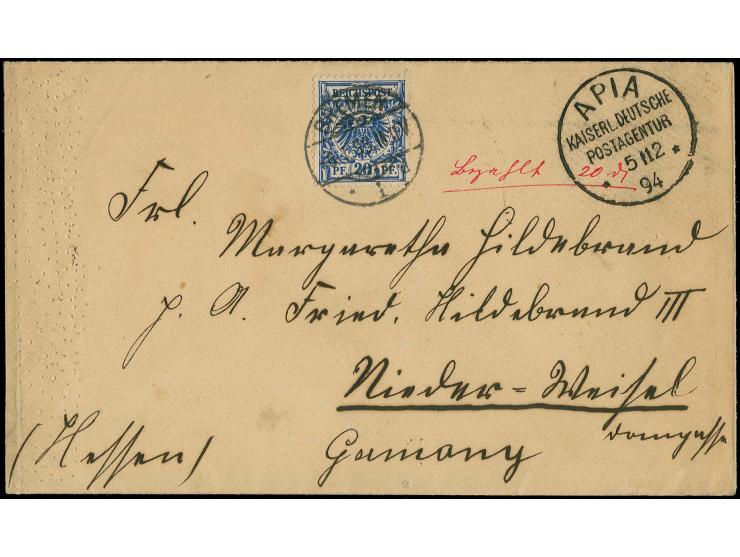 REICHSPOST
BREMEN
PF. 20 PF.
* 1
Bezahlt 20 d
APIA
KAISERL. DEUTSCHE
POSTAGENTUR
* 5 12 *
94
Frl.
Margaretha Hildebrand
p. A. Fried. Hildebrand III
Nieder-Weisel
(Hessen) Germany